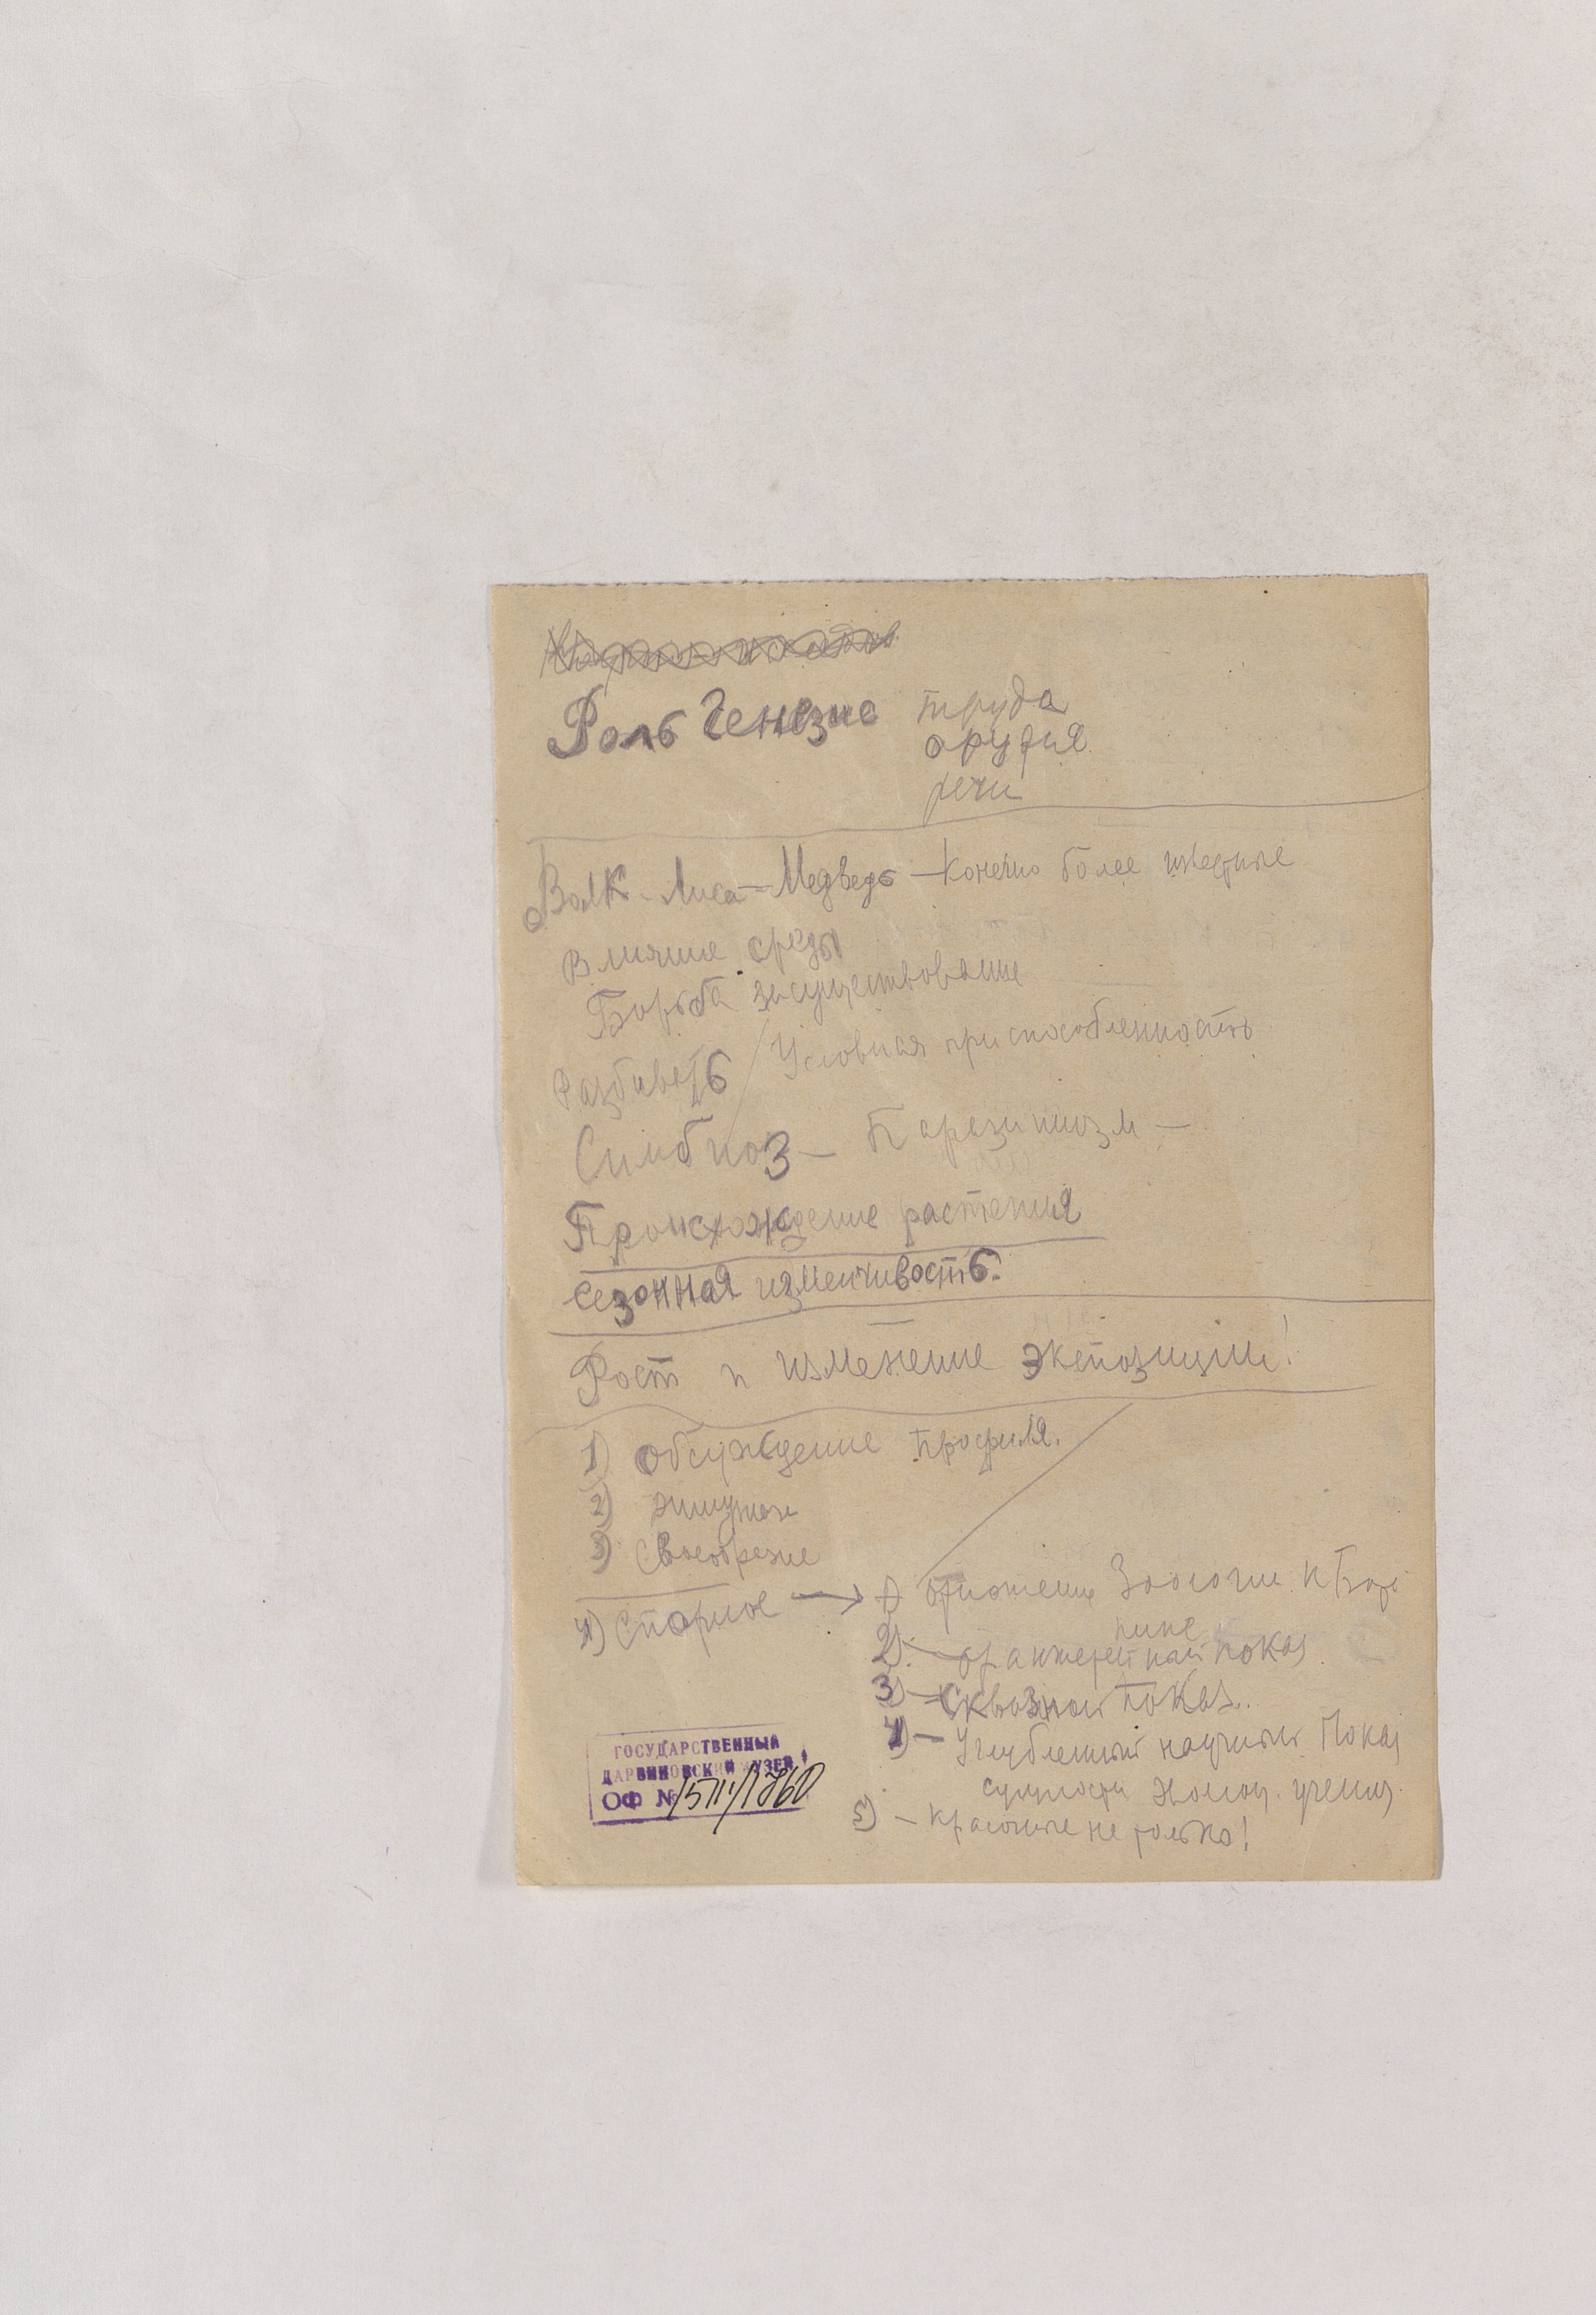 Роль Генезис труда
орудия
речи
Волк - Лиса - Медведь - Конечно более
Влияние среды
Борьба за существование
Развивать / Условная приспособленность
Симбиоз - Паразитизм -
Происхождение растения
Сезонная изменчивость.
Рост и изменение экспозиции!
1) Обсуждение профиля.
2)
3) Своеобразие
4) Спорное → 1) отношение Зоологии к Бота
нике
2) - оранжерейный показ.
3) - Сквозной показ.
4) - Углубленный научный показ
сущности эволюц. учения
5) - красочные не только!
ГОСУДАРСТВЕННЫЙ
ДАРВИНОВСКИЙ МУЗЕЙ
ОФ №